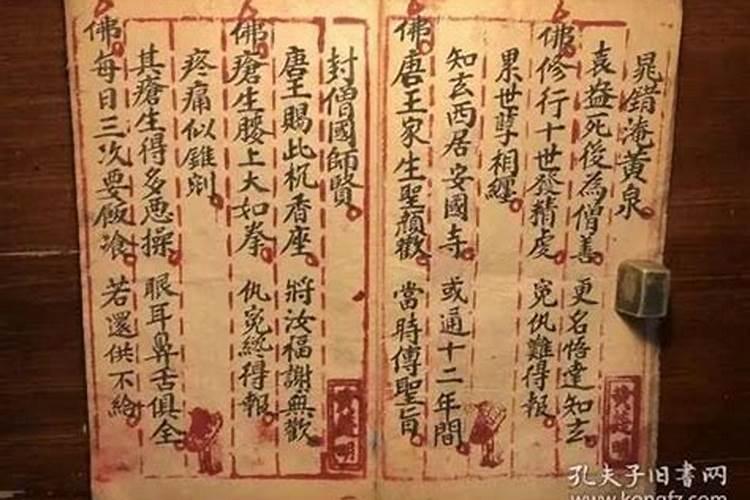 晁錯淹黄泉
袁盎死後為僧善 更名悟達知玄
佛修行十世發精虔 寃仇難得報
累世孽相纏
知玄西居安國寺 或通十二年間
佛唐王家生聖顏歡 當時傳聖旨
封僧國師賢
唐王賜此机香座 將汝福謝無歡
佛瘡生腰上大如拳 仇寃終得報
疼痛似錐剜
其瘡生得多悪操 眼耳鼻舌俱全
佛每日三次要飯飡 若還供不給
孔夫子旧書网
www.kongfz.com